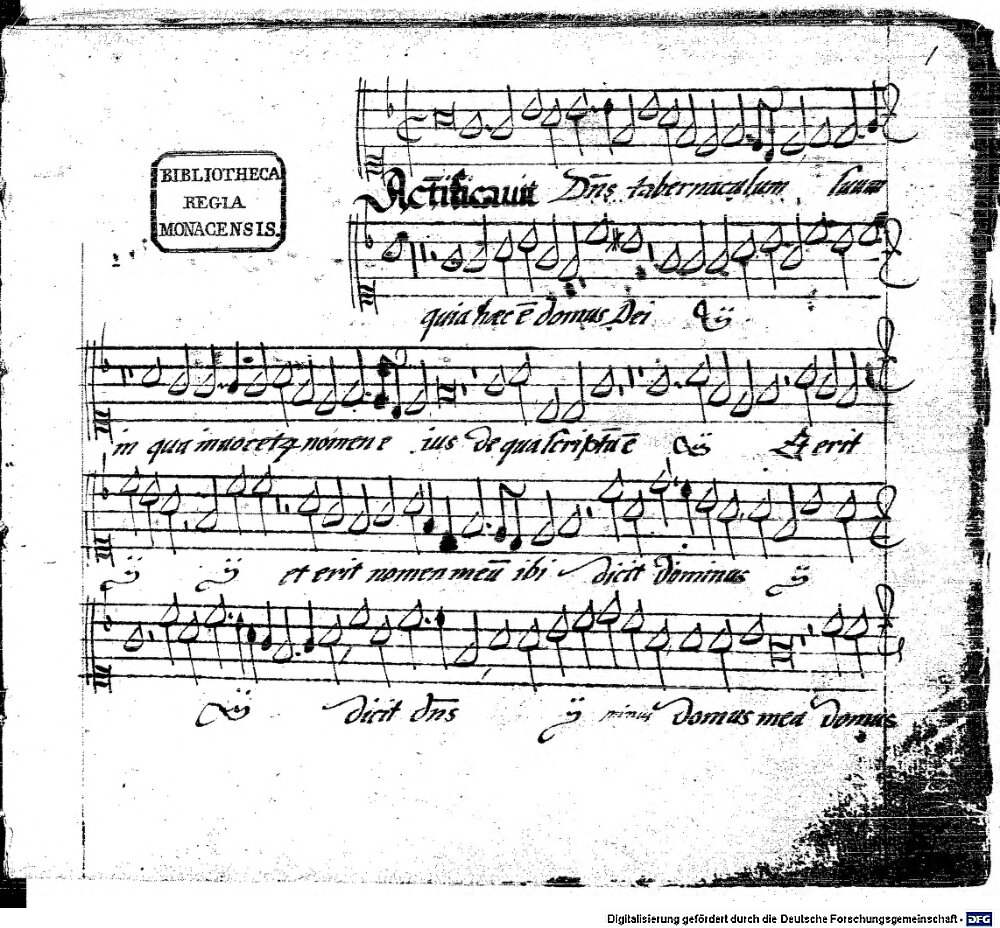 1
BIBLIOTHECA
REGIA
MONACENSIS.
Sāctificauit Dn̄s tabernaculum suum
quia haec ē domus Dei ij
in qua inuocetꝗ nomen e ius de qua scriptū ē ij Et erit
ij ij et erit nomen meū ibi dicit dominus ij
ij dicit dn̄s ij domus mea domus
Digitalisierung gefördert durch die Deutsche Forschungsgemeinschaft - DFG